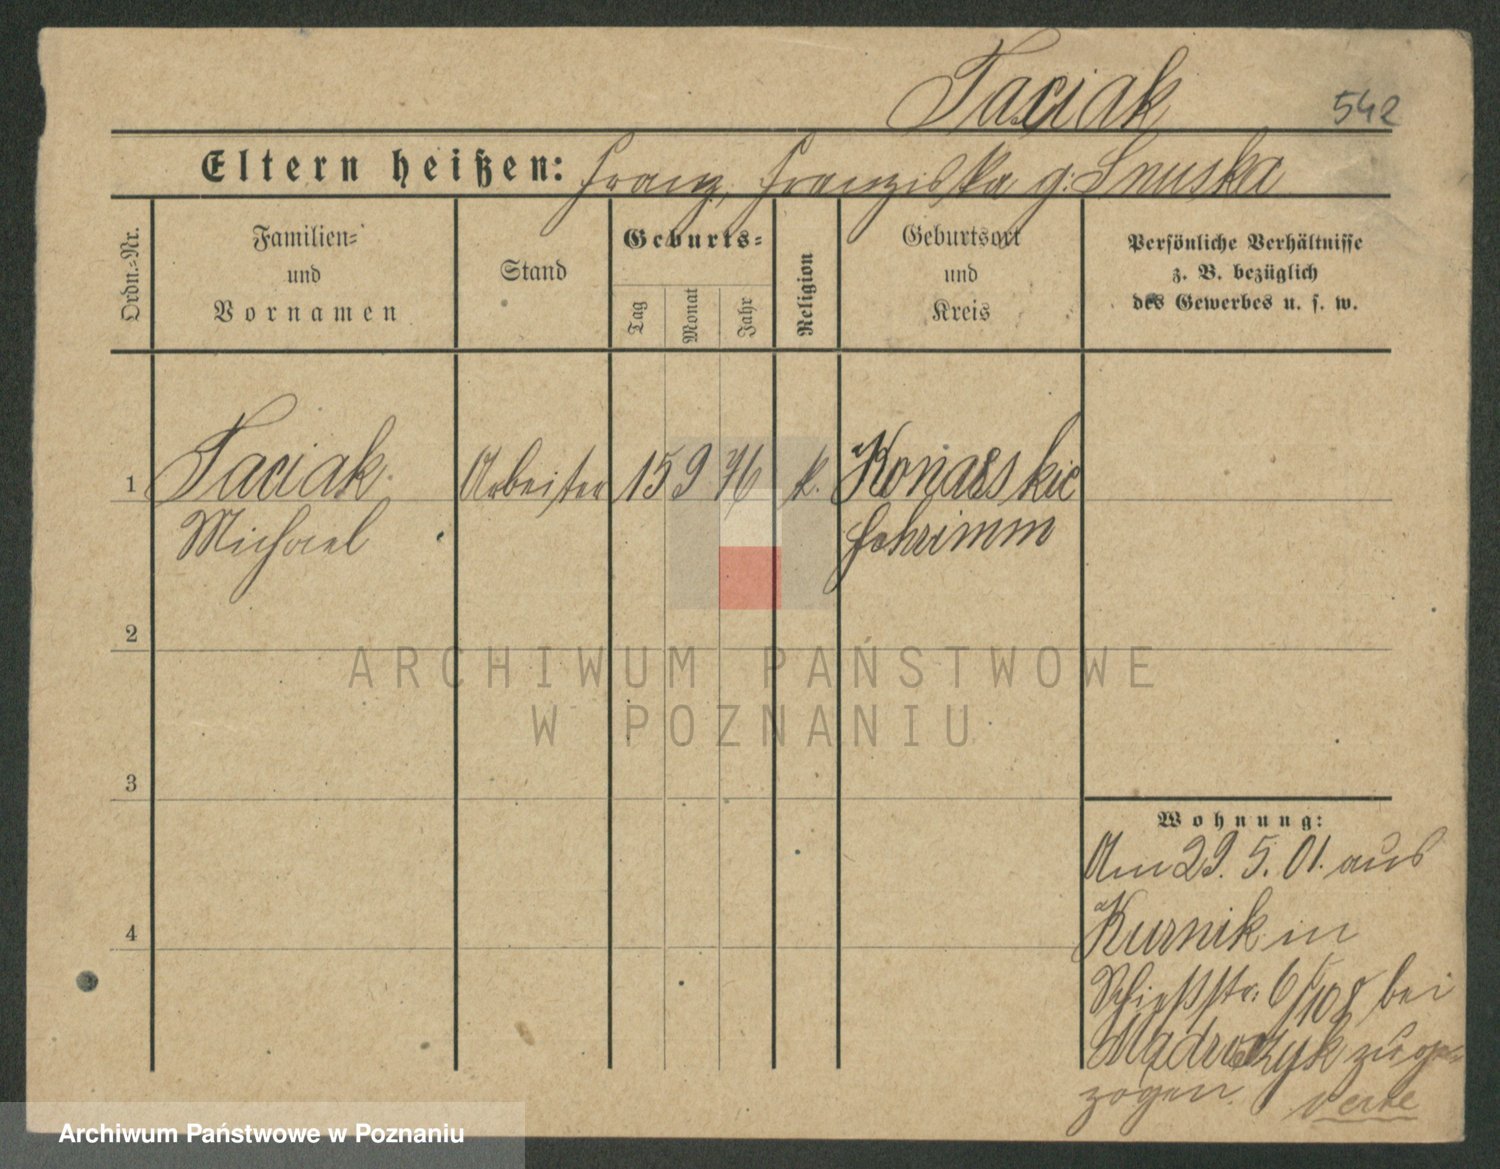 Taciak
542
Eltern heißen: Franz, Franziska g. Snuska
Ordn.-Nr.
Familien-
und
Vornamen
Stand
Geburts-
Tag
Monat
Jahr
Religion
Geburtsort
und
Kreis
Persönliche Verhältnisse
z. B. bezüglich
des Gewerbes u. s. w.
1 Taciak Arbeiter 15 9 76 k.
Michael Schrimm
2
3
4
Wohnung:
Am 29. 5. 01. aus
Kurnik in
Schießstr. 6/108 bei
zuge-
zogen.
ARCHIWUM PAŃSTWOWE
W POZNANIU
Archiwum Państwowe w Poznaniu